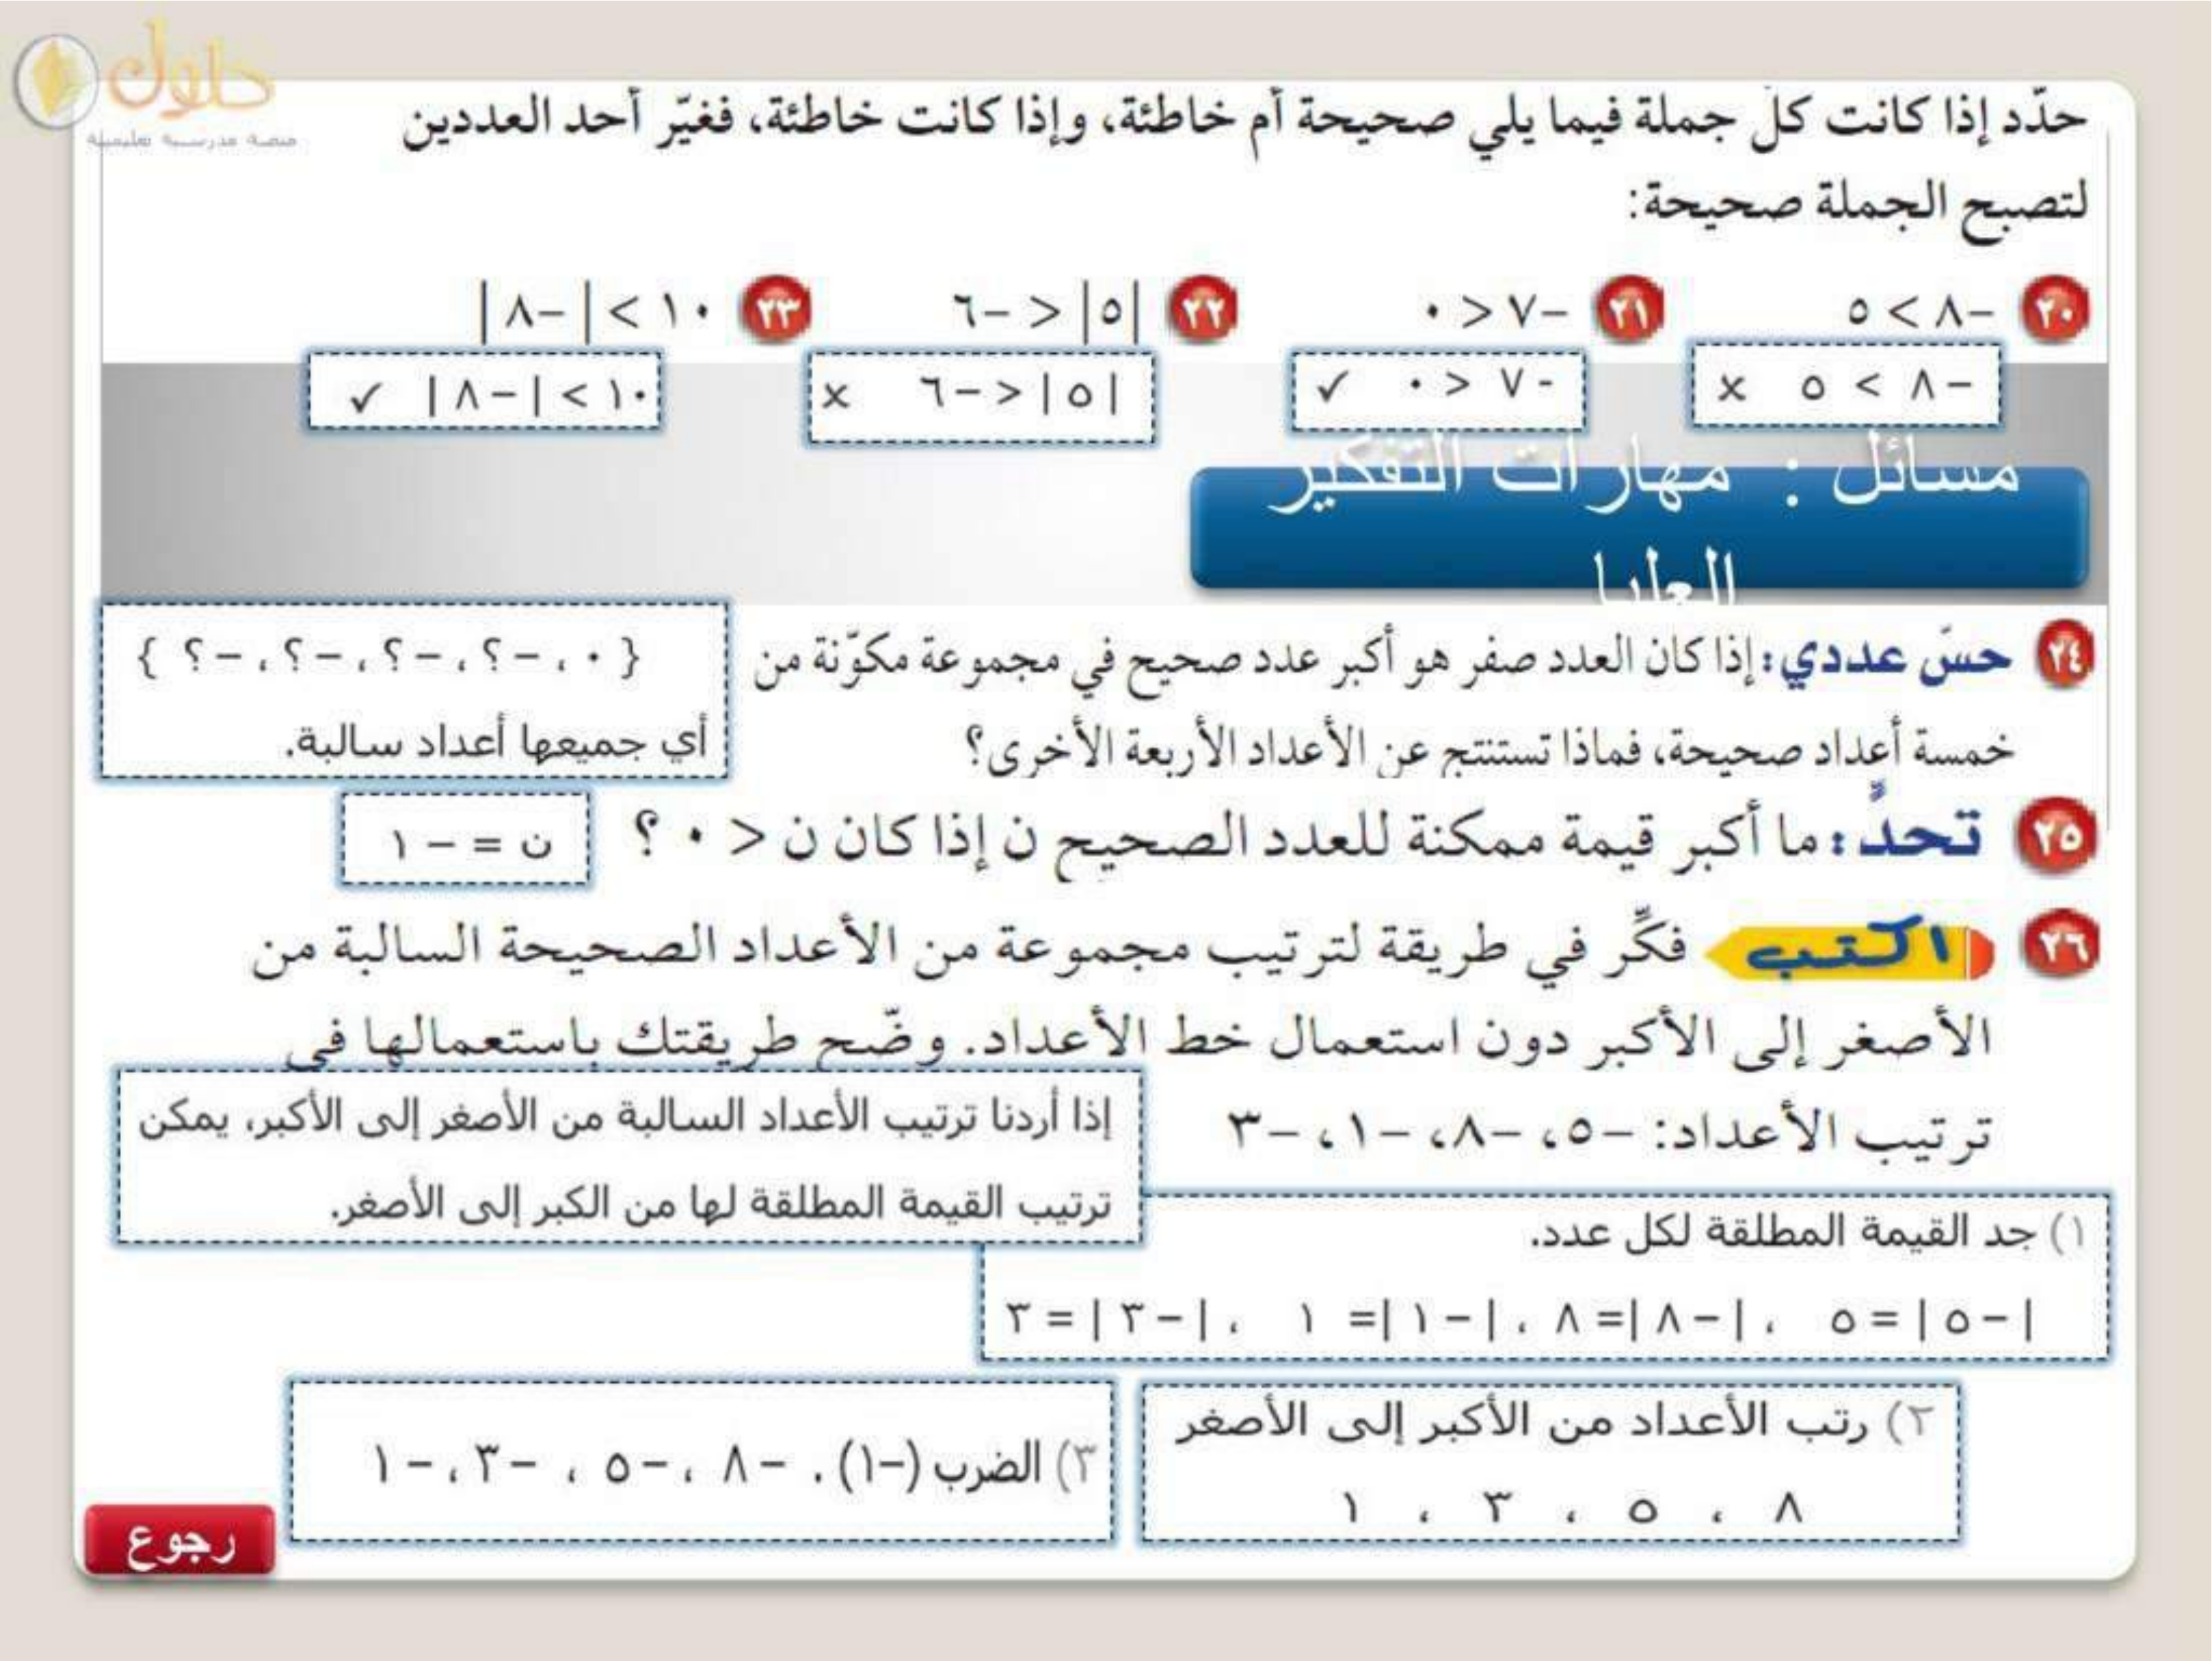 حلول
منصة مدرسية تعليمية
حدّد إذا كانت كلّ جملة فيما يلي صحيحة أم خاطئة، وإذا كانت خاطئة، فغيّر أحد العددين
لتصبح الجملة صحيحة:
٢٠ –٨ > ٥ ٢١ –٧ < ٠ ٢٢ |٥| < –٦ ٢٣ ١٠ > |–٨|
–٨ > ٥ ×
-٧ < ٠ ✓
|٥| < –٦ ×
١٠ > |–٨| ✓
مسائل : مهارات التفكير
العليا
٢٤ حسّ عددي: إذا كان العدد صفر هو أكبر عدد صحيح في مجموعة مكوّنة من
خمسة أعداد صحيحة، فماذا تستنتج عن الأعداد الأربعة الأخرى؟
{ ٠ ، –؟ ، –؟ ، –؟ ، –؟ }
أي جميعها أعداد سالبة.
٢٥ تحدٍّ: ما أكبر قيمة ممكنة للعدد الصحيح ن إذا كان ن < ٠ ؟
ن = – ١
٢٦ اكتب فكِّر في طريقة لترتيب مجموعة من الأعداد الصحيحة السالبة من
الأصغر إلى الأكبر دون استعمال خط الأعداد. وضّح طريقتك باستعمالها في
ترتيب الأعداد: –٥، –٨، –١، –٣
إذا أردنا ترتيب الأعداد السالبة من الأصغر إلى الأكبر، يمكن
ترتيب القيمة المطلقة لها من الكبر إلى الأصغر.
١) جد القيمة المطلقة لكل عدد.
|–٥| = ٥ ، |–٨| = ٨ ، |–١| = ١ ، |–٣| = ٣
٢) رتب الأعداد من الأكبر إلى الأصغر
٨ ، ٥ ، ٣ ، ١
٣) الضرب (–١) . –٨ ، –٥ ، –٣ ، –١
رجوع